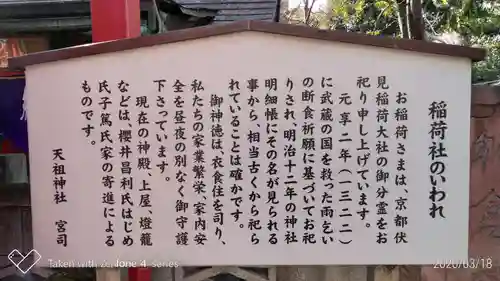 稲荷社のいわれ
お稲荷さまは、京都伏
見稲荷大社の御分霊をお
祀り申し上げています。
元享二年（一三二二）
に武蔵の国を救った雨乞い
の断食祈願に基づいてお祀
りされ、明治十二年の神社
明細帳にその名が見られる
事から、相当古くから祀ら
れていることは確かです。
御神徳は、衣食住を司り、
私たちの家業繁栄、家内安
全を昼夜の別なく御守護
下さっています。
現在の神殿、上屋、燈籠
などは、櫻井昌利氏はじめ
氏子篤氏家の寄進による
ものです。
天祖神社　宮司
Taken with Zenfone 4 series
2020/03/18